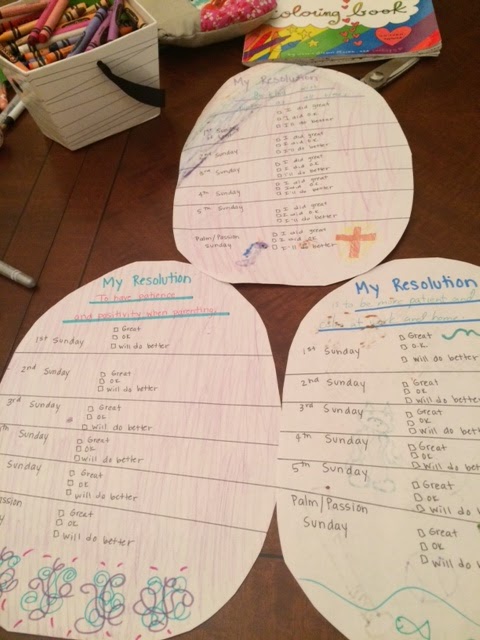 Coloring book
My Resolution
Sunday
☐ I did great
☐ I did ok
☐ I'll do better
2nd Sunday
☐ I did great
☐ I did ok
☐ I'll do better
3rd Sunday
☐ I did great
☐ I did ok
☐ I'll do better
4th Sunday
☐ I did great
☐ I did ok
☐ I'll do better
5th Sunday
☐ I did great
☐ I did ok
☐ I'll do better
Palm/Passion
Sunday
☐ I did great
☐ I did ok
☐ I'll do better
My Resolution
To have patience
and positivity when parenting.
1st Sunday
☐ Great
☐ OK
☐ Will do better
2nd Sunday
☐ Great
☐ OK
☐ Will do better
3rd Sunday
☐ Great
☐ OK
☐ Will do better
th Sunday
☐ Great
☐ OK
☐ Will do better
Sunday
☐ Great
☐ OK
☐ Will do better
assion
y
☐ Great
☐ OK
☐ Will do better
My Resolution
is to be more patient and
at work and home.
1st Sunday
☐ Great
☐ OK
☐ Will do better
2nd Sunday
☐ Great
☐ OK
☐ Will do better
3rd Sunday
☐ Great
☐ OK
☐ Will do better
4th Sunday
☐ Great
☐ OK
☐ Will do better
5th Sunday
☐ Great
☐ OK
☐ Will do better
Palm/Passion
Sunday
☐ Great
☐ OK
☐ Will do be